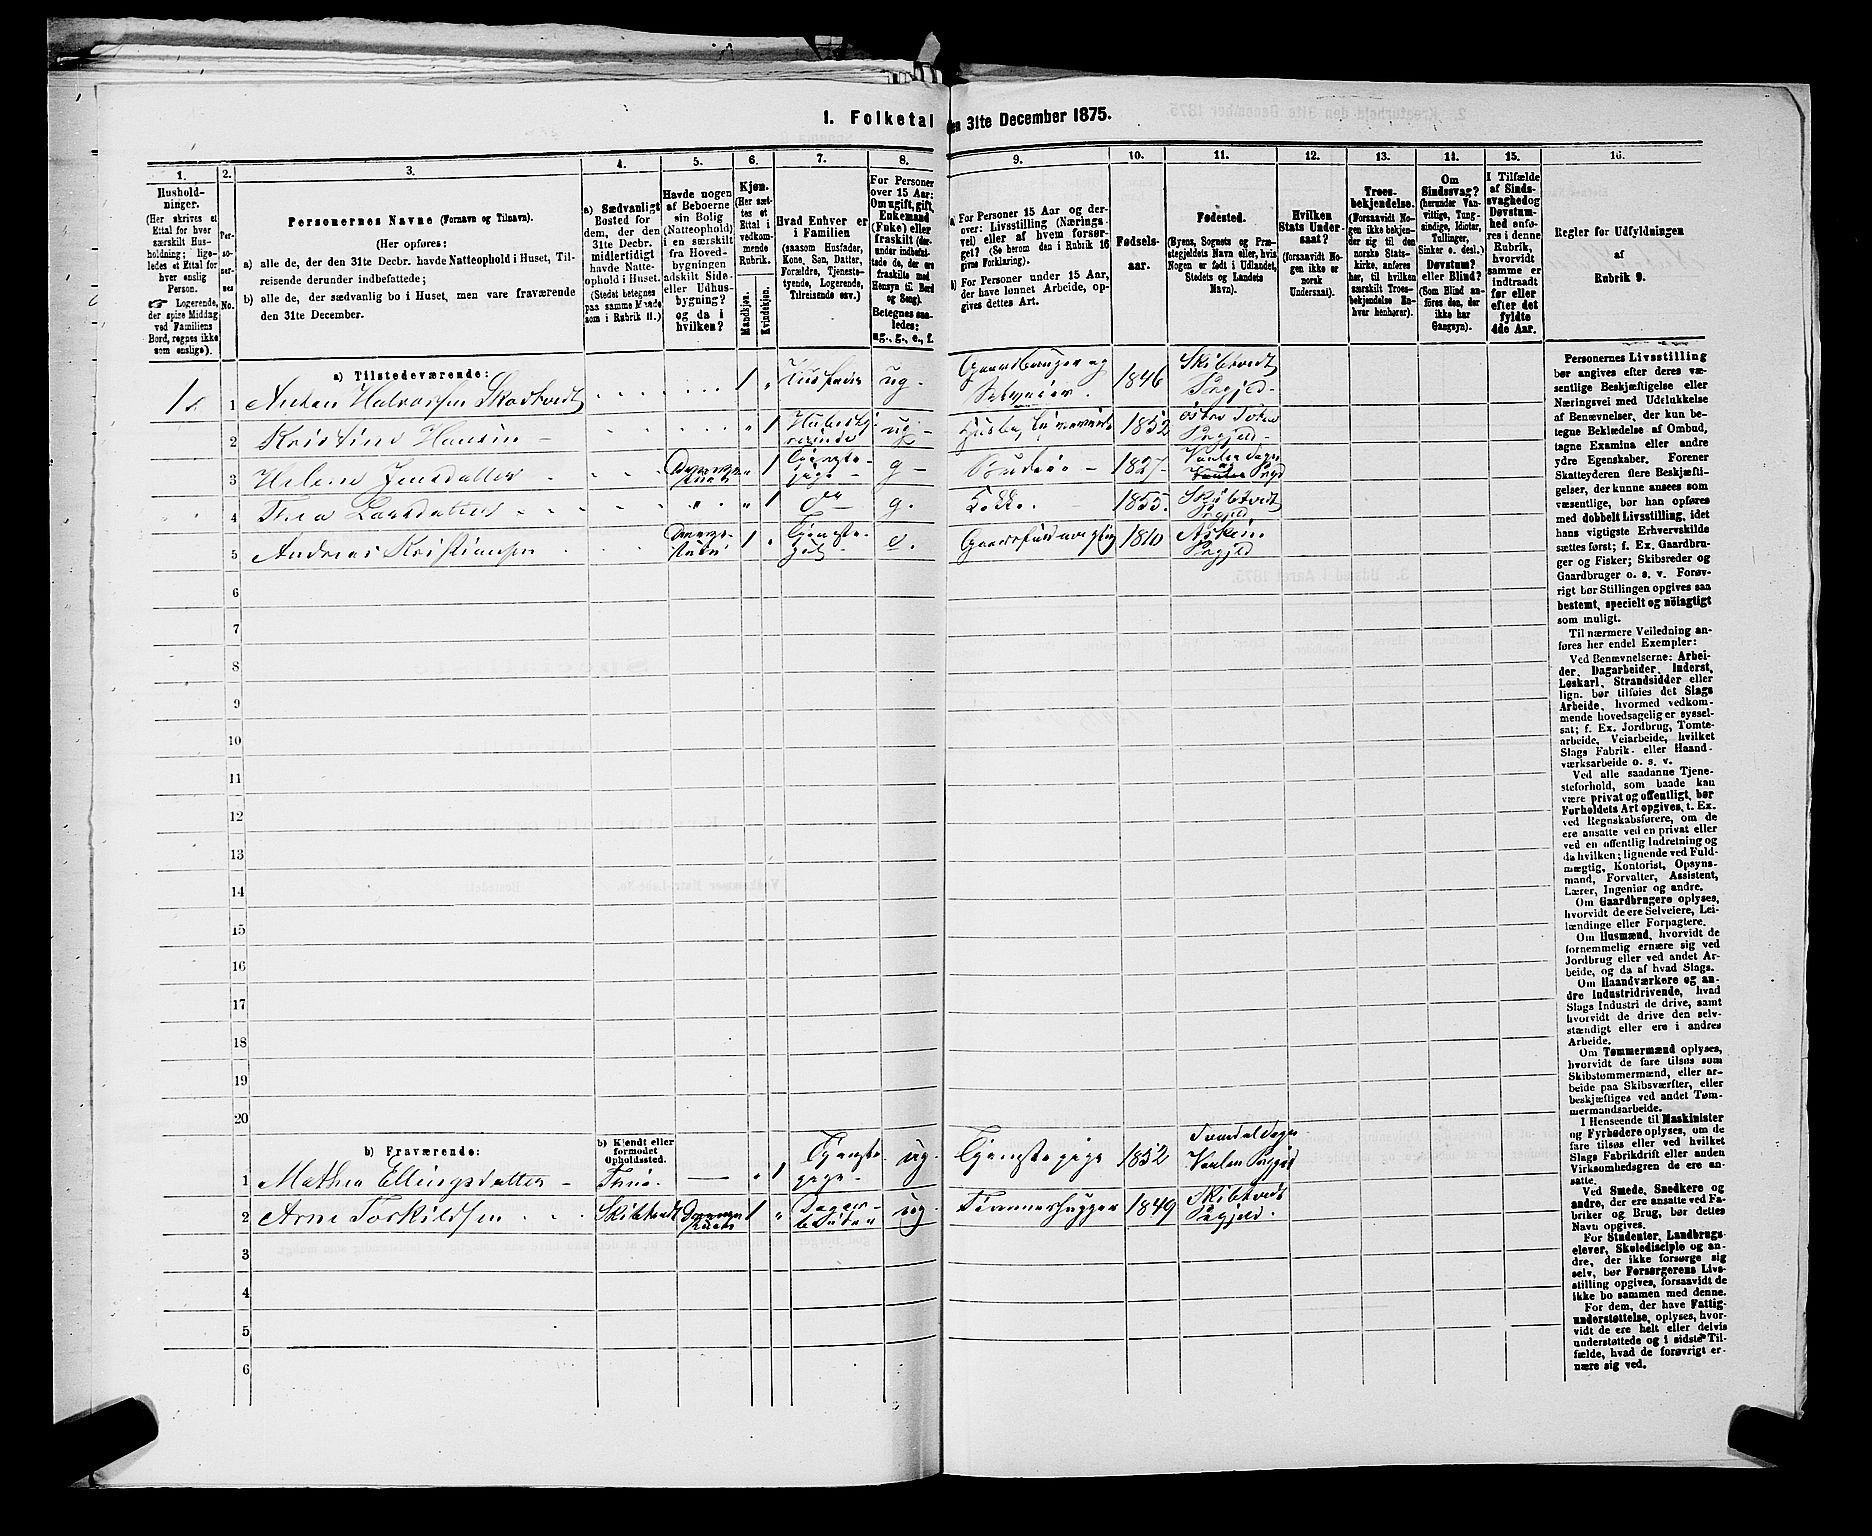 1. Folketal
den 31te December 1875.
1.
2.
3.
4.
5.
6.
7.
8.
9.
10.
11.
12.
13.
14.
15.
16.
Hushold-
ninger.
(Her skrives et
Ettal for hver
særskilt Hus-
holdning; lige-
ledes et Ettal for
hver enslig
Person.
☞ Logerende,
der spise Middag
ved Familiens
Bord, regnes ikke
som enslige).
Per-
soner-
nes
No.
Personernes Navne (Fornavn og Tilnavn).
(Her opføres:
a) alle de, der den 31te Decbr. havde Natteophold i Huset, Til-
reisende derunder indbefattede;
b) alle de, der sædvanlig bo i Huset, men vare fraværende
den 31te December.
a) Sædvanligt
Bosted for
dem, der den
31te Decbr.
midlertidigt
havde Natte-
ophold i Huset.
(Stedet betegnes
paa samme Maade
som i Rubrik 11.)
Havde nogen
af Beboerne
sin Bolig
(Natteophold)
i en særskilt
fra Hoved-
bygningen
adskilt Side-
eller Udhus-
bygning?
og da i
hvilken?
Kjøn.
(Her sæt-
tes et
Ettal i
vedkom-
mende
Rubrik.
Mandkjøn.
Kvindekjøn.
Hvad Enhver er
i Familien
(saasom Husfader,
Kone, Søn, Datter,
Forældre, Tjeneste-
tyende, Logerende,
Tilreisende osv.)
For Personer
over 15 Aar:
Om ugift, gift,
Enkemand
(Enke) eller
fraskilt (der-
under indbefat-
tede de, der ere
fraskilte med
Hensyn til Bord
og Seng).
Betegnes saa-
ledes:
ug., g., e., f.
a) For Personer 15 Aar og der-
over: Livsstilling (Nærings-
vei) eller af hvem forsør-
get (Se herom den i Rubrik 16
givne Forklaring).
b) For Personer under 15 Aar,
der have lønnet Arbeide, op-
gives dettes Art.
Fødsels-
aar.
Fødested.
(Byens, Sognets og Præ-
stegjeldets Navn eller, hvis
Nogen er født i Udlandet,
Stedets og Landets
Navn).
Hvilken
Stats Under-
saat?
(forsaavidt No-
gen ikke er
norsk
Undersaat).
Troes-
bekjendelse.
(Forsaavidt No-
gen ikke bekjen-
der sig til den
norske Stats-
kirke, anføres
her, til hvilken
særskilt Troes-
bekjendelse En-
hver henhører).
Om
Sindssvag?
(herunder Van-
vittige, Tung-
sindige, Idioter,
Tullinger,
Sinker o. desl.)
Døvstum?
eller Blind?
(Som Blind an-
føres den, der
ikke har
Gangsyn).
I Tilfælde
af Sinds-
svaghed og
Døvstum-
hed anfø-
res i denne
Rubrik,
hvorvidt
samme er
indtraadt
før eller
efter det
fyldte
4de Aar.
Regler for Udfyldningen
af
Rubrik 9.
a) Tilstedeværende:
1 Anton Halvorsen Skodtvedt 1 Husfader ug. Gaardbruger og Selveier. 1846 Skibtvedt Prgjeld.
2 Kristine Hansen 1 ug. 1852 Prgjeld.
3 Helene Jensdatter 1 Tjenestepige g 1827
4 Thea Larsdatter 1 do g. 1855. Skibtvedt Prgjeld
5 Andreas Kristiansen 1 e. 1810 Askim Prgjeld
6
7
8
9
10
11
12
13
14
15
16
17
18
19
20
b) Fraværende:
b) Kjendt eller
formodet
Opholdssted.
1 Mathea Ellingsdatter 1 Tjenestepige ug. Tjenestepige 1852 Prgjeld
2 Arne Torkildsen Skibtvedt 1 ug. Tømmerhugger 1849 Skibtvedt Prgjeld.
3
4
5
6
Personernes Livsstilling
bør angives efter deres væ-
sentlige Beskjæftigelse eller
Næringsvei med Udelukkelse
af Benævnelser, der kun be-
tegne Beklædelse af Ombud,
tagne Examina eller andre
ydre Egenskaber. Forener
Skatteyderen flere Beskjæfti-
gelser, der kunne ansees som
væsentlige, bør han opføres
med dobbelt Livsstilling, idet
hans vigtigste Erhvervskilde
sættes først; f. Ex. Gaardbru-
ger og Fisker; Skibsreder og
Gaardbruger o. s. v. Forøv-
rigt bør Stillingen opgives saa
bestemt, specielt og nöiagtigt
som muligt.
Til nærmere Veiledning an-
føres her endel Exempler:
Ved Benævnelserne: Arbei-
der, Dagarbeider, Inderst,
Løskarl, Strandsidder eller
lign. bør tilføies det Slags
Arbeide, hvormed vedkom-
mende hovedsagelig er syssel-
sat; f. Ex. Jordbrug, Tomte-
arbeide, Veiarbeide, hvilket
Slags Fabrik- eller Haand-
værksarbeide o. s. v.
Ved alle saadanne Tjene-
steforhold, som baade kan
være privat og offentligt, bør
Forholdets Art opgives, t. Ex.
ved Regnskabsførere, om de
ere ansatte ved en privat eller
ved en offentlig Indretning og
da hvilken; lignende ved Fuld-
mægtig, Kontorist, Opsyns-
mand, Forvalter, Assistent,
Lærer, Ingeniør og andre.
Om Gaardbrugere oplyses,
hvorvidt de ere Selveiere, Lei-
lændinge eller Forpagtere.
Om Husmænd, hvorvidt de
fornemmelig ernære sig ved
Jordbrug eller ved andet Ar-
beide, og da af hvad Slags.
Om Haandværkere og an-
dre Industridrivende, hvad
Slags Industri de drive, samt
hvorvidt de drive den selv-
stændigt eller ere i andres
Arbeide.
Om Tømmermænd oplyses,
hvorvidt de fare tilsøs som
Skibstømmermænd, eller ar-
beide paa Skibsværfter, eller
beskjæftiges ved andet Tøm-
mermandsarbeide.
I Henseende til Maskinister
og Fyrbødere oplyses, om de
fare tilsøs eller ved hvilket
Slags Fabrikdrift eller anden
Virksomhedsgren de ere an-
satte.
Ved Smede, Snedkere og
andre, der ere ansatte ved Fa-
briker og Brug, bør dettes
Navn opgives.
For Studenter, Landbrugs-
elever, Skoledisciple og an-
dre, der ikke forsørge sig
selv, bør Forsørgerens Livs-
stilling opgives, forsaavidt de
ikke bo sammen med denne.
For dem, der have Fattig-
understøttelse, oplyses, hvor-
vidt de ere helt eller delvis
understøttede og i sidste Til-
fælde, hvad de forøvrigt er-
nære sig ved.